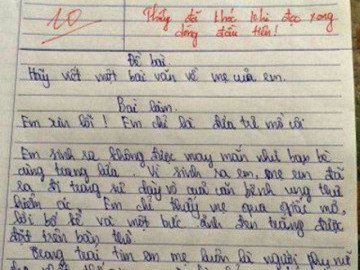 10
Thầy đã khóc khi đọc xong
dòng đầu tiên!
Đề bài
Hãy viết một bài văn về mẹ của em.
Bài làm.
Em xin lỗi! Em chỉ là đứa trẻ mồ côi
Em sinh ra không được may mắn như bạn bè
cùng trang lứa. Vì sinh ra em, mẹ em đã
ra đi trong sự dày vò của căn bệnh ung thư
hiểm ác. Em chỉ thấy mẹ qua giấc mơ,
lời bố kể và một bức ảnh đen trắng được
đặt trên bàn thờ.
Trong trái tim em mẹ luôn là người phụ nữ